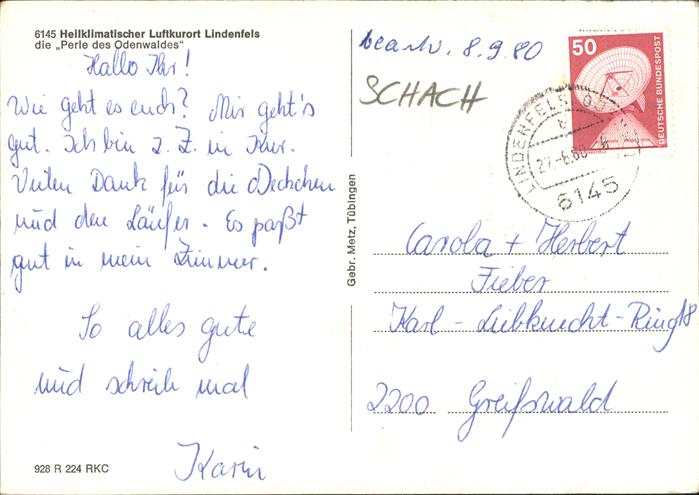 6145 Heilklimatischer Luftkurort Lindenfels
die „Perle des Odenwaldes"
Hallo Ihr!
Wie geht es euch? Mir geht's
gut. Ich bin z. Z. in Kur.
Vielen Dank für die Deckchen
und den Läufer. Es paßt
gut in mein Zimmer.
So alles gute
und schreib mal
Karin
928 R 224 RKC
Gebr. Metz, Tübingen
beantw. 8.9.80
SCHACH
50
DEUTSCHE BUNDESPOST
LINDENFELS
6145
Carola + Herbert
Fieber
Karl-Liebknecht-Ring 18
2200 Greifswald